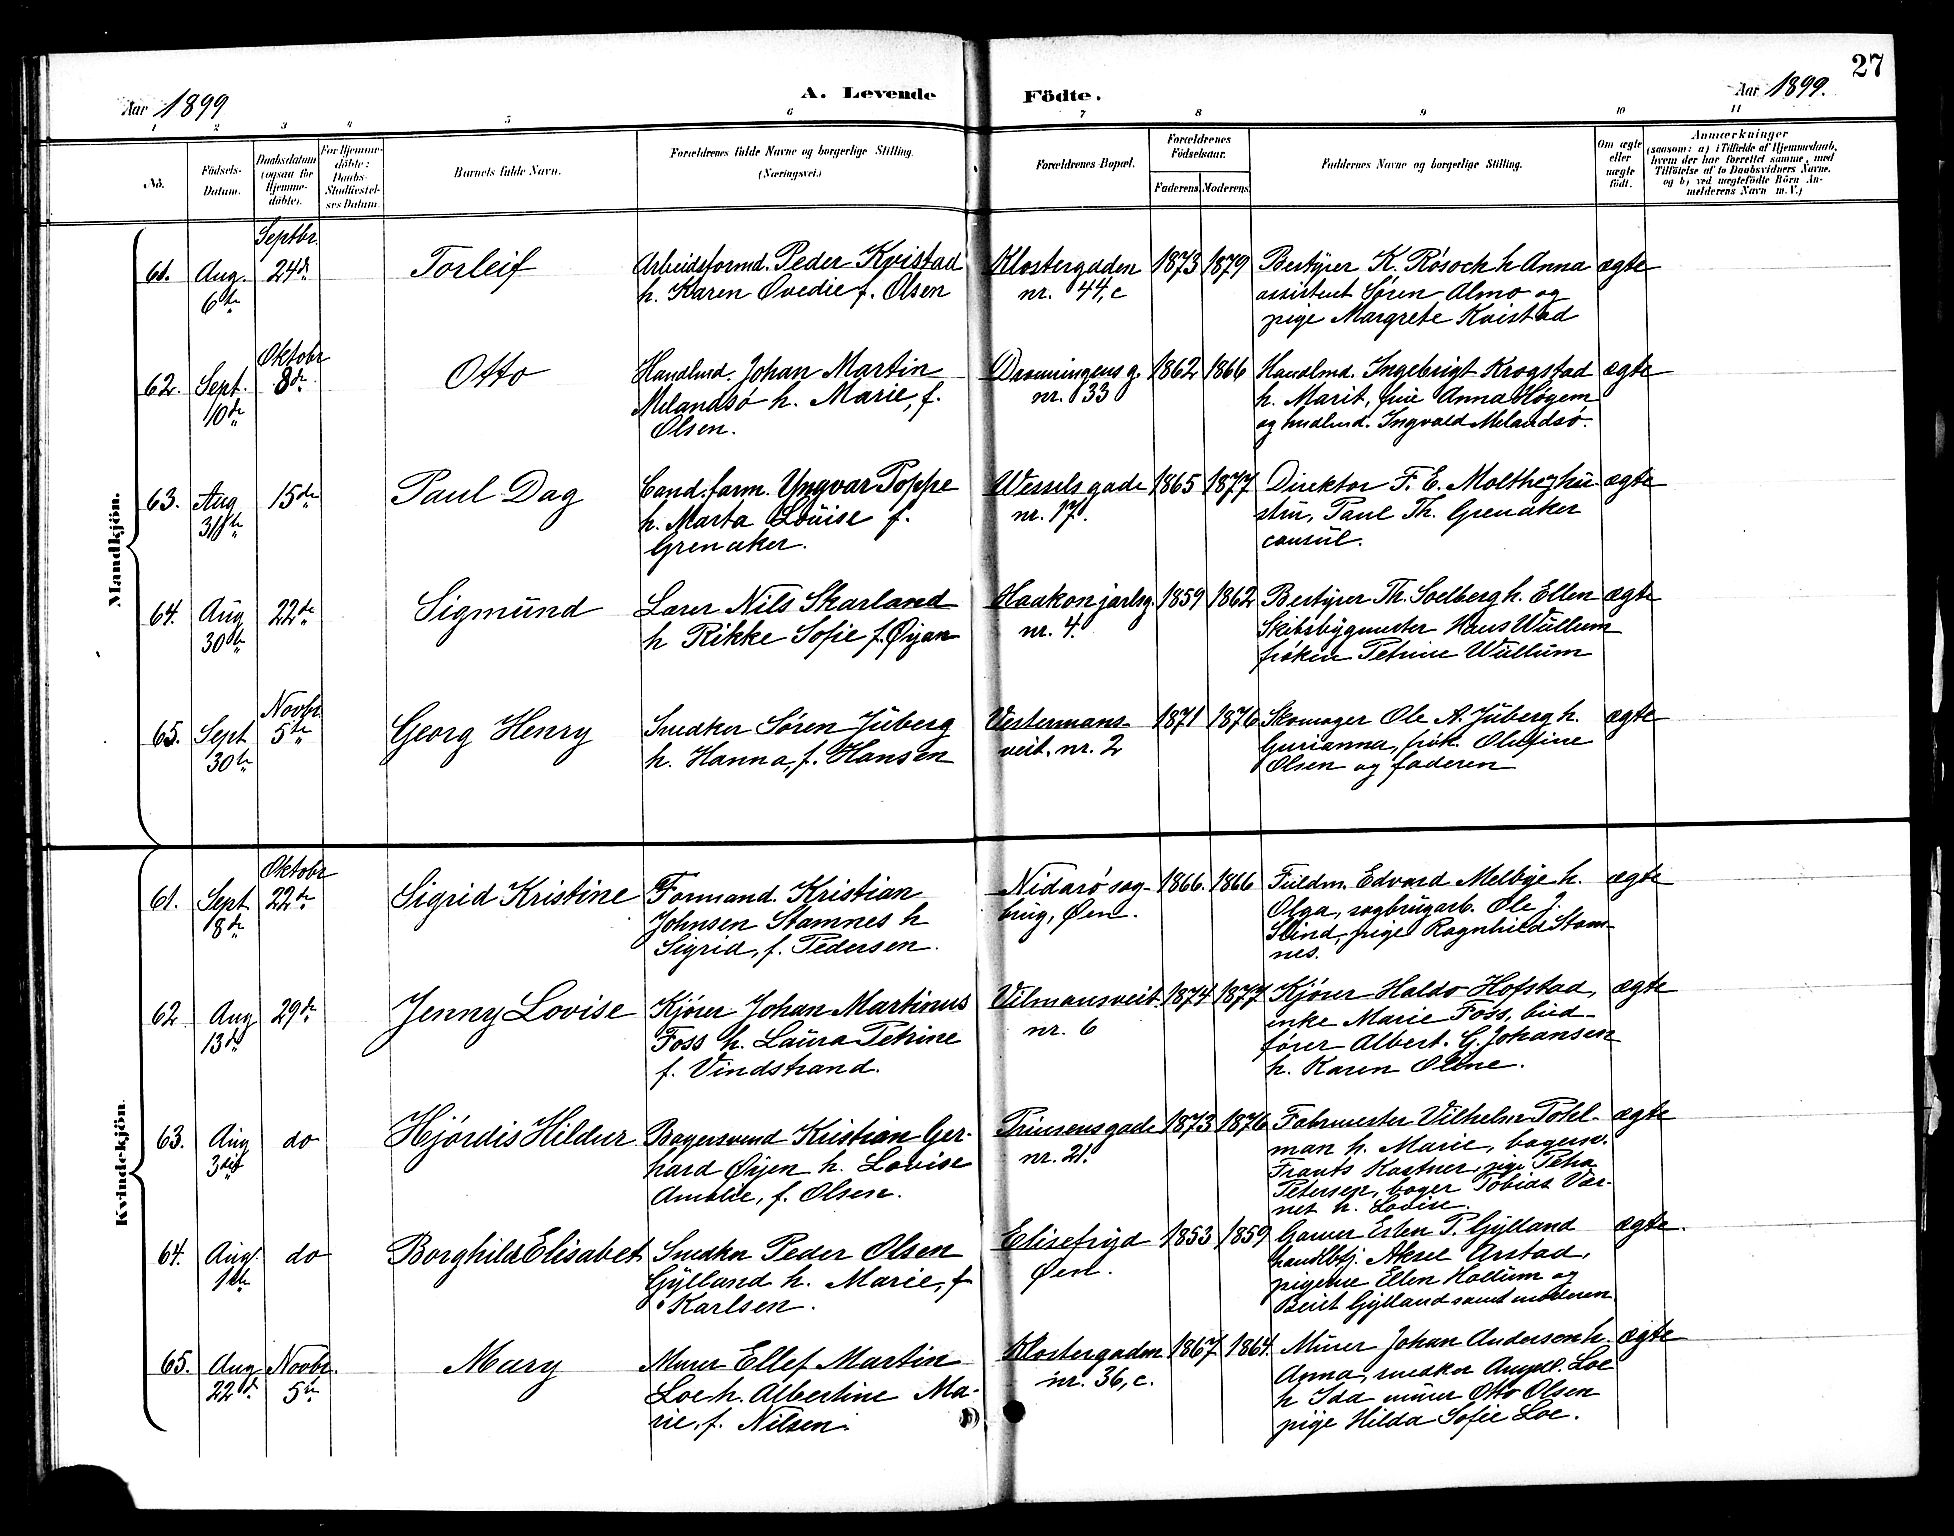 27
Aar 1899
A. Levende Födte.
Aar 1899.
1 2 3 4 5 6 7 8 9 10 11
No.
Fødsels-
Datum.
Daabsdatum
(ogsaa for
Hjemme-
døbte).
For Hjemme-
døbte:
Daabs-
Stadfæstel-
ses Datum.
Barnets fulde Navn.
Forældrenes fulde Navne og borgerlige Stilling.
(Næringsvei.)
Forældrenes Bopæl.
Forældrenes
Fødselsaar.
Faderens Moderens
Faddernes Navne og borgerlige Stilling.
Om ægte
eller
uægte
født.
Anmærkninger
(saasom: a) i Tilfælde af Hjemmedaab,
hvem der har forrettet samme, med
Tilføielse af to Daabsvidners Navne,
og b) ved uægtefødte Børn An-
melderens Navn m. V.)
Mandkjön.
61. Aug.
6te
Septbr.
24de
Torleif
Arbeidsformd. Peder Kvistad
h. Karen Ovedie f. Olsen
Klostergaden
nr. 44,c
1873 1879
Bestyrer K. Røsoch h. Anna
assistent Søren Almo og
pige Margrete Kvistad
ægte
62. Sept.
10de
Oktobr
8de
Otto
Handlmd. Johan Martin
Melandsö h. Marie, f.
Olsen.
Dronningens g.
nr. 33
1862 1866
Handlmd. Ingebrigt Krogstad
h. Marit, frue Anna Högem
og hndlmd. Ingvald Melandsö.
ægte
63. Aug
31te
15de
Paul Dag
Cand. farm. Yngvar Poppe
h. Marta Louise f.
Grenaker.
Wessels gade
nr. 17.
1865 1877
Direktor F. E. Molthe, hu-
stru, Paul Th. Grenaker
consul.
ægte
64. Aug
30te
22de
Sigmund
Lærer Nils Skarland
h Rikke Sofie f. Øyan
Haakon jarlsg.
nr. 4.
1859 1862
Bestyrer Th. Solberg h. Ellen
Skibsbygmester Hans Wullum
frøken Petrine Wullum
ægte
65. Sept
30te
Novbr
5te
Georg Henry
Snedker Søren Juberg
h. Hanna, f. Hansen
Vestermans-
veit. nr. 2
1871 1876
Skomager Ole A. Juberg h.
Gurianna, frøk. Olufine
Olsen og faderen
ægte
Kvindekjön.
61. Sept
8de
Oktobr
22de
Sigrid Kristine
Formand. Kristian
Johnsen Stamnes h
Sigrid, f. Pedersen.
Nidarö sag-
brug, Øen.
1866. 1866
Fuldm. Edvard Melbye h.
Olga, sagbrugarb. Ole J.
Slind, pige Ragnhild Stam-
nes.
ægte
62 Aug
13de
29de
Jenny Lovise
Kjörer Johan Martinus
Foss h. Laura Petrine
f. Vindstrand.
Vilmansveit.
nr. 6
1874 1877
Kjører Haldo Hofstad,
enke Marie Foss, bud-
fører Albert. G. Johansen
h. Karen Oline.
ægte
63. Aug
3die
do
Hjördis Hildur
Bagersvend Kristian Ger-
hard Øijen h. Lovise
Amalie, f. Olsen.
Prinsensgade
nr. 21.
1873 1876
Fabrmester Vilhelm Pohl-
man h. Marie, bagersv.
Frants Kastner, pige Petra
Petersen, bager Tobias Var-
net h. Lovise.
ægte
64. Aug.
1ste
do
Borghild Elisabet
Snedker Peder Olsen
Gylland h. Marie, f
Karlsen.
Elisefryd
Øen.
1853 1859
Garver Esten P. Gylland
handlbtj. Aksel Arstad,
pigerne Ellen Hallum og
Berit Gylland samt moderen
ægte.
65. Aug
22de
Novbr.
5te
Mary
Murer Ellef Martin
Loe h. Albertine Ma-
rie, f. Nilsen.
Klostergaden
nr. 36, c.
1867 1864.
Murer Johan Andersen h.
Anna, snedker Loe
h Ida murer Otto Olsen
pige Hilda Sofie Loe.
ægte